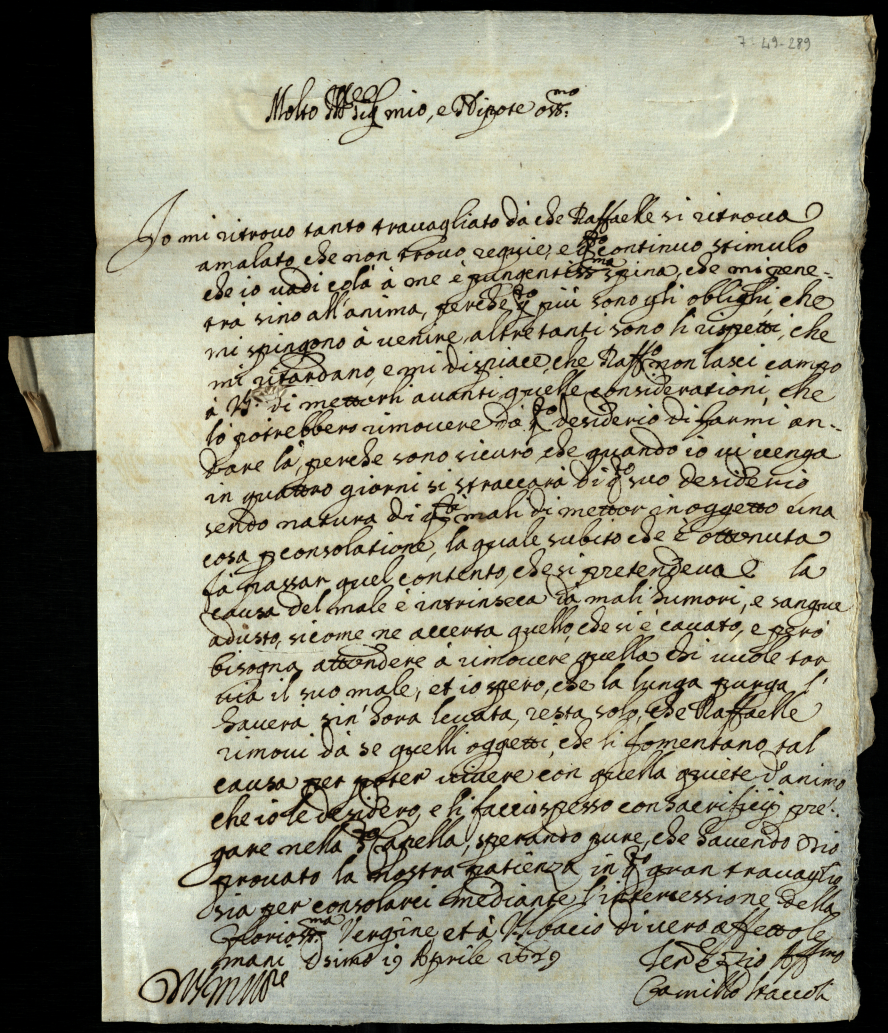 7-49-289
Molto Sig mio, e Nipote oss.mo
Io mi ritrovo tanto travagliato dà che Raffaelle si ritrova
amalato che non trovo requie, e continuo stimulo
che io vadi colà à me è pungentiss.ma spina, che mi pene-
tra sino all'anima, perche più sono gli oblighi, che
mi spingono à venire, altre tanti sono li rispetti, che
mi ritardano, e mi dispiace, che Raff.o non lasci campo
à di metterli avanti quelle considerationi, che
lo potrebbero rimovere dà desiderio di farmi an-
dare là, perche sono sicuro, che quando io vi venga
in quattro giorni si straccarà di suo desiderio
sendo natura di mali di metter in oggetto una
cosa p consolatione, la quale subito che è ottenuta
fà passar quel contento, che si pretendeva la
causa del male è intrinseca dà mali humori, e sangue
adusto, sicome ne accerta quello, che si è cavato, e però
bisogna attendere à rimovere quella chi vuole tor
via il suo male, et io spero, che la lunga purga l'
haverà sin' hora levata, resta solo, che Raffaelle
rimovi dà se quelli oggetti, che li fomentano tal
causa per poter vivere con quella quiete d'animo
che io le desidero, e li faccio spesso con sacrificij pre-
gare nella Capella, sperando pure, che havendo Dio
provato la nostra patienza in gran travaglio
sia per consolarci mediante l'intercessione della
Glorios.ma Vergine et à bacio di vero affetto le
mani Osimo 19 Aprile 1629
Zio Aff.mo
Camillo Staccoli